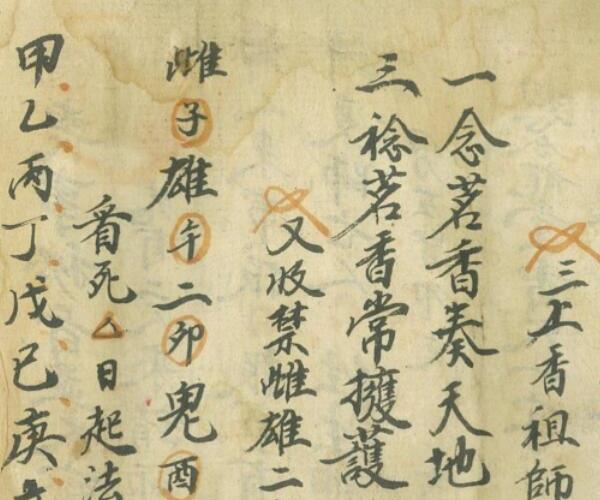 三上香祖師
一念茗香奏天地
三稔茗香常擁護
又收禁雌雄二
雌子雄午二卯鬼酉
看死厶日起法
甲乙丙丁戊己庚